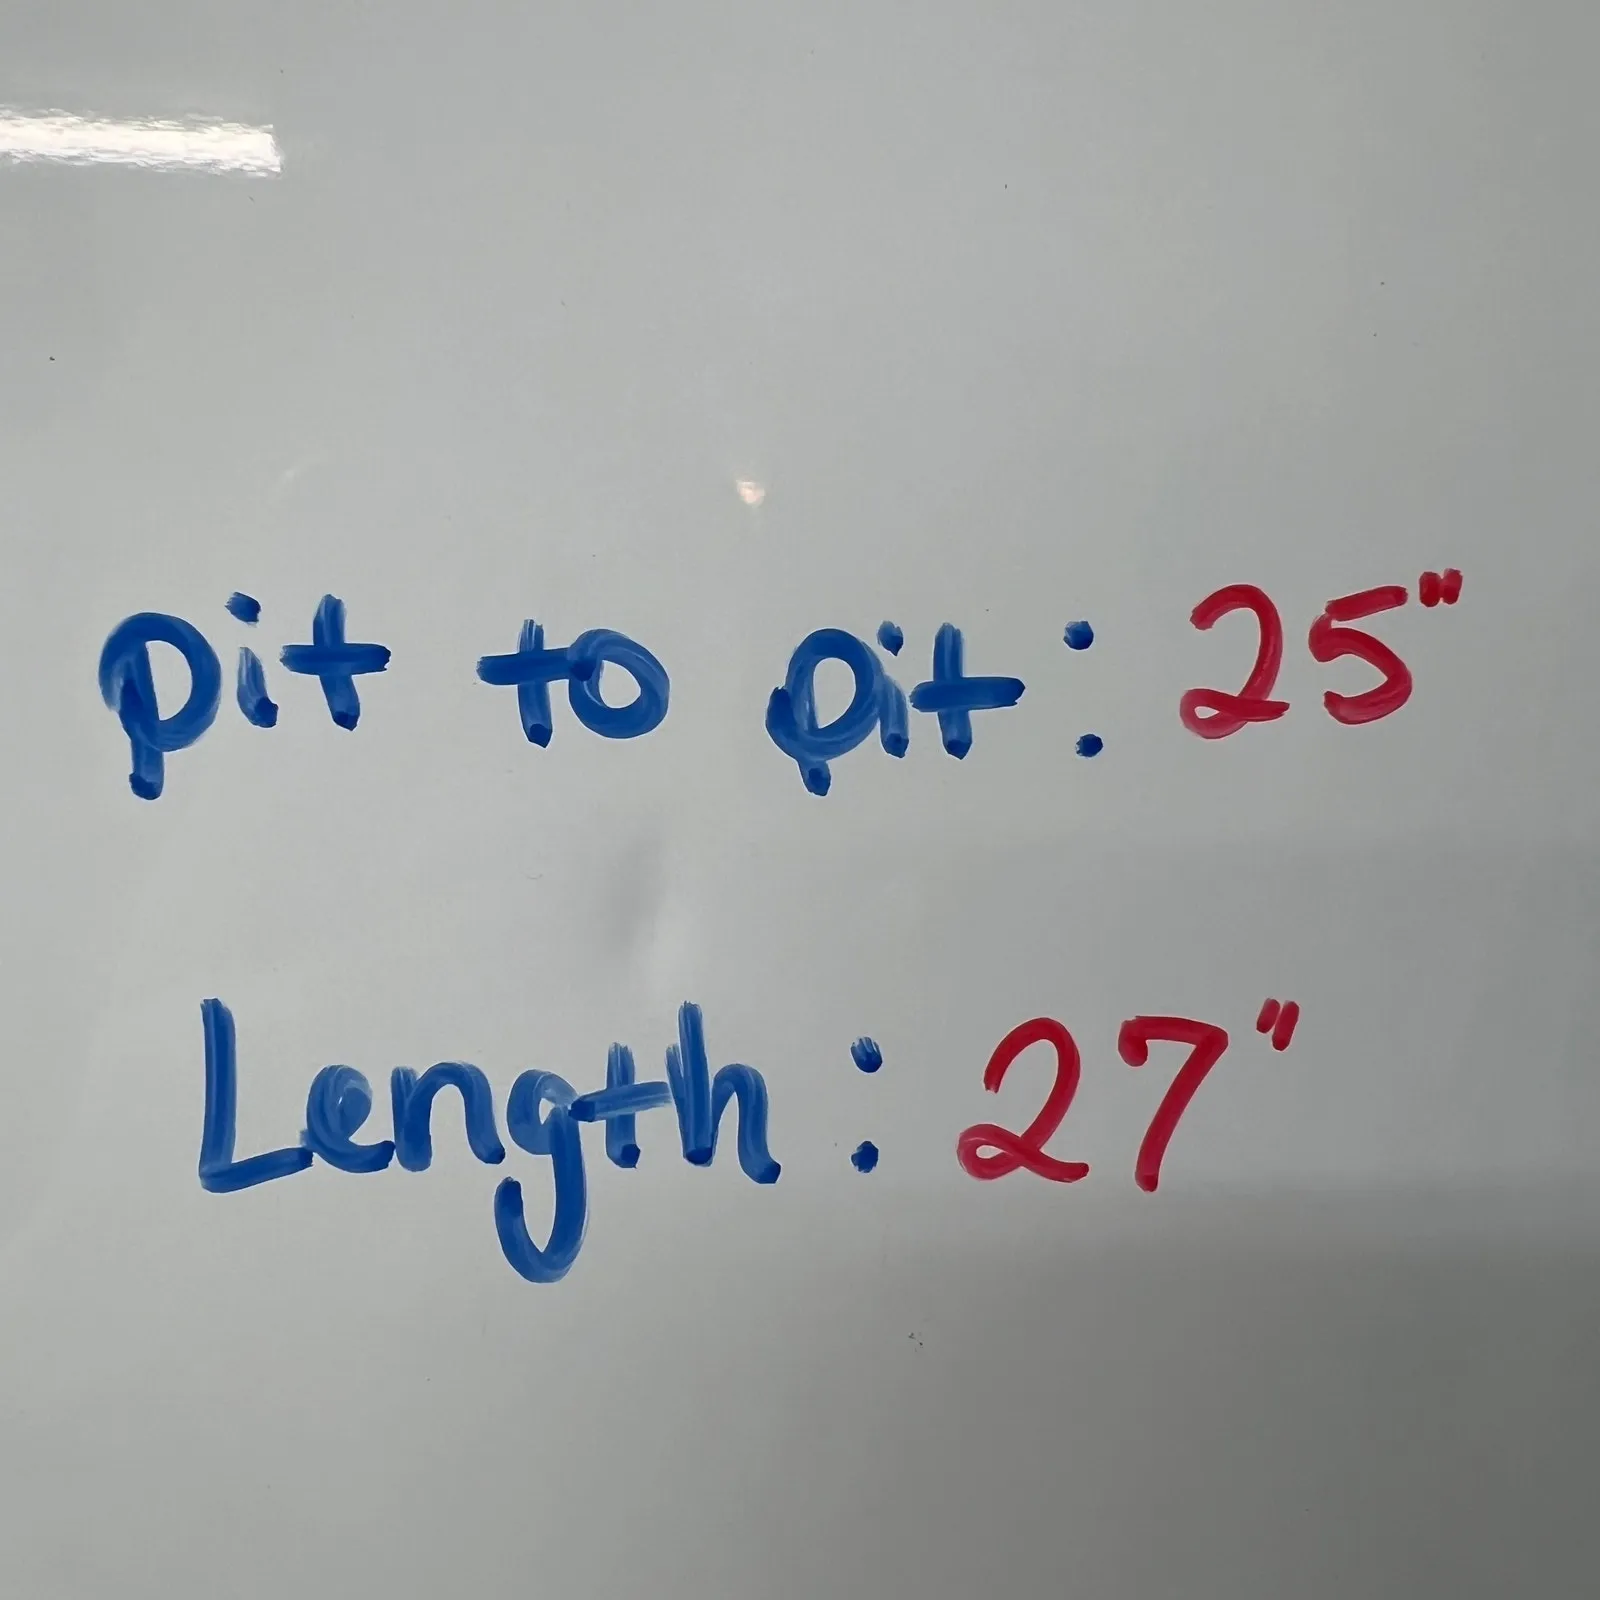 pit to pit: 25"
Length: 27"